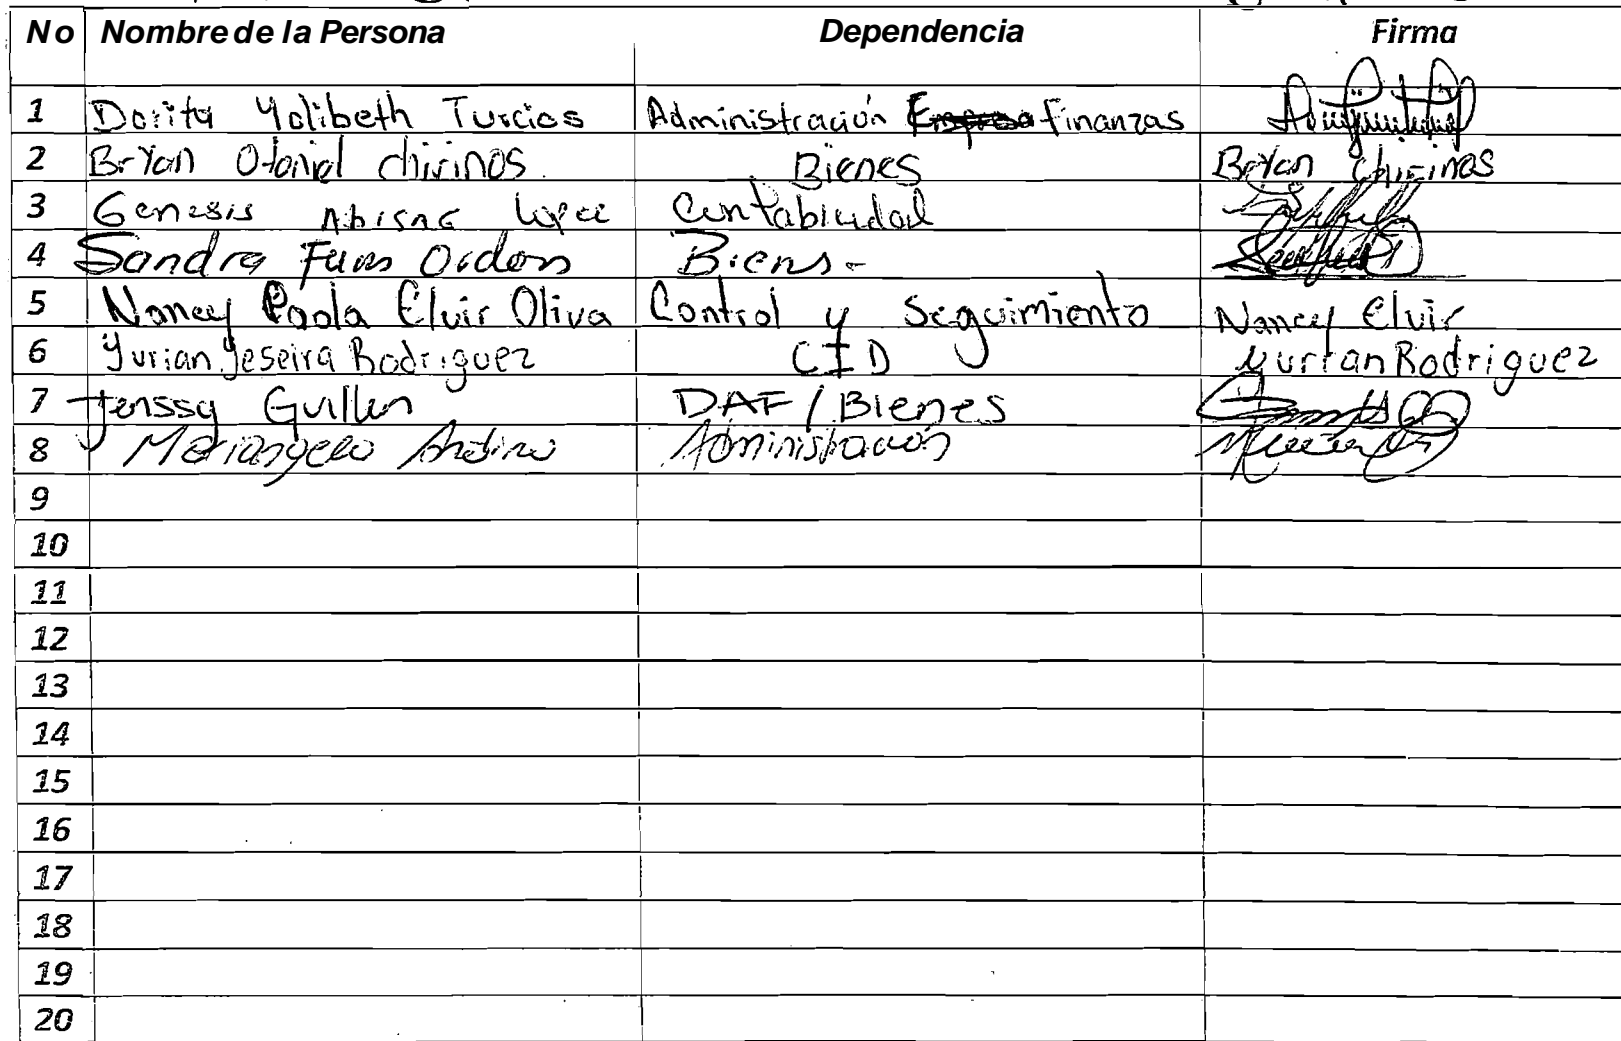 No Nombre de la Persona Dependencia Firma
1 Dorita Yolibeth Turcios Administración Finanzas
2 Bryan Otoniel chirinos Bienes Bryan Chirinos
3 Genesis Abisag Contabilidad
4 Sandra
5 Nancy Paola Elvir Oliva Control y Seguimiento Nancy Elvir
6 Yurian Jeseira Rodriguez CID Yurian Rodriguez
7 Jenssy Guillen DAF / Bienes
8 Andino Administración
9
10
11
12
13
14
15
16
17
18
19
20